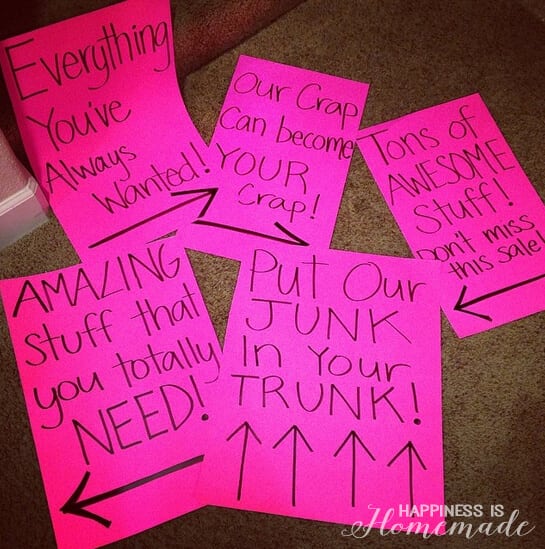 Everything
You've
Always
Wanted!
Our Crap
Can become
YOUR
Crap!
Tons of
AWESOME
Stuff!
Don't miss
this sale!
AMAZING
Stuff that
you totally
NEED!
Put Our
JUNK
In Your
TRUNK!
HAPPINESS IS
Homemade